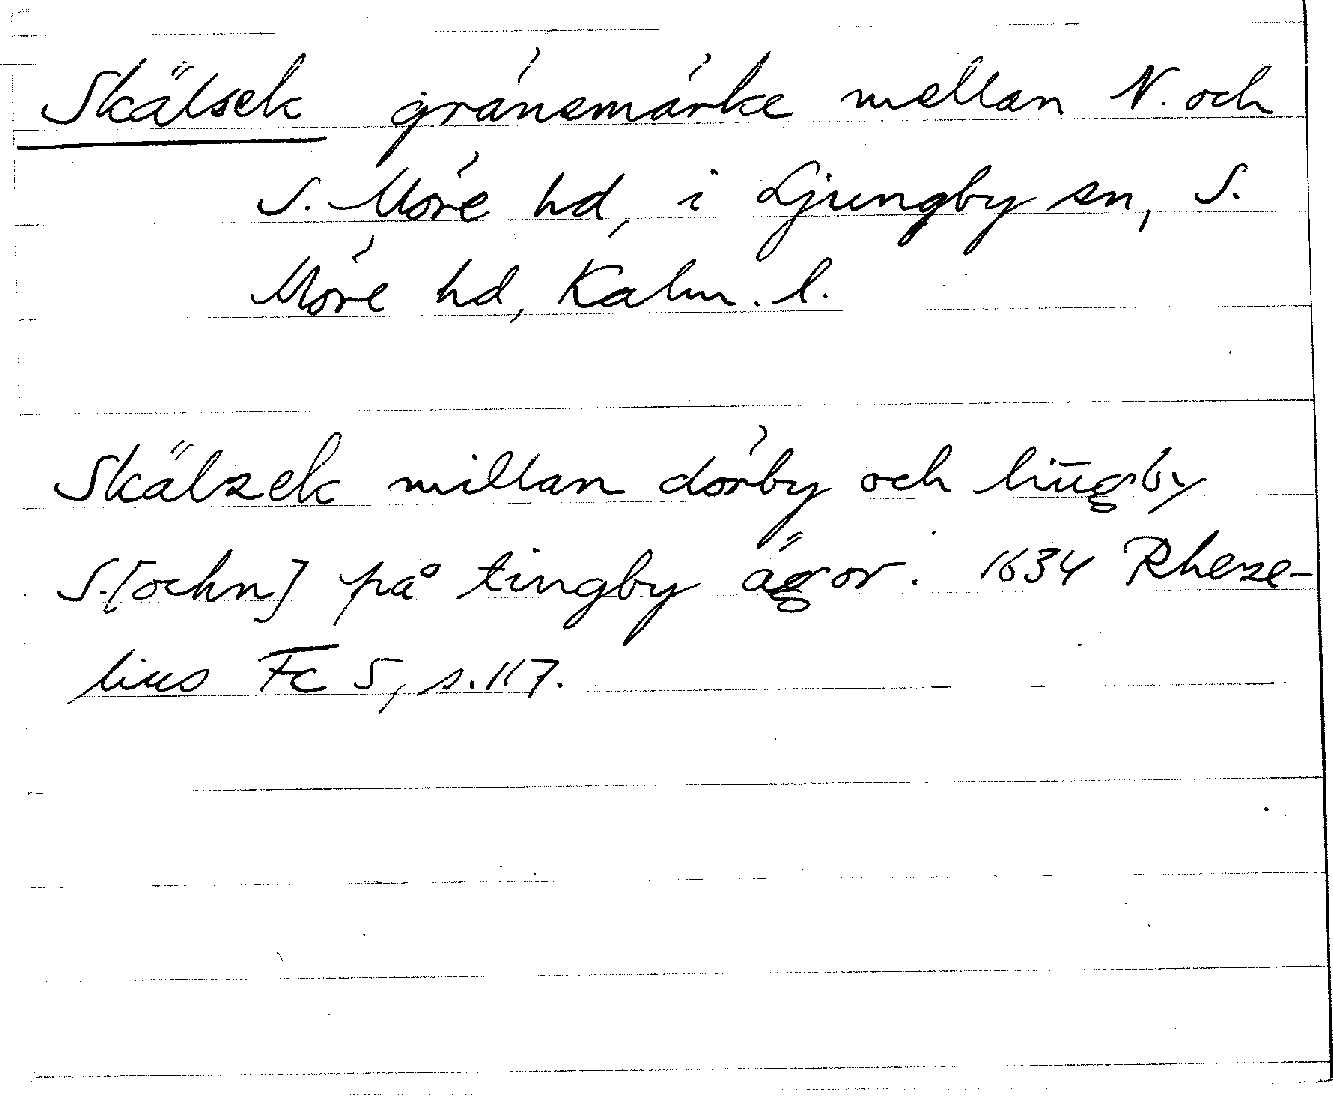 Skälsek gränsmärke mellan N. och
S. Möre hd, i Ljungby sn, S.
Möre hd, Kalm. l.
Skälzek millan dörby och liūgby
S.[ochn] på tingby ägor. 1634 Rheze-
lius Fc 5, s. 117.